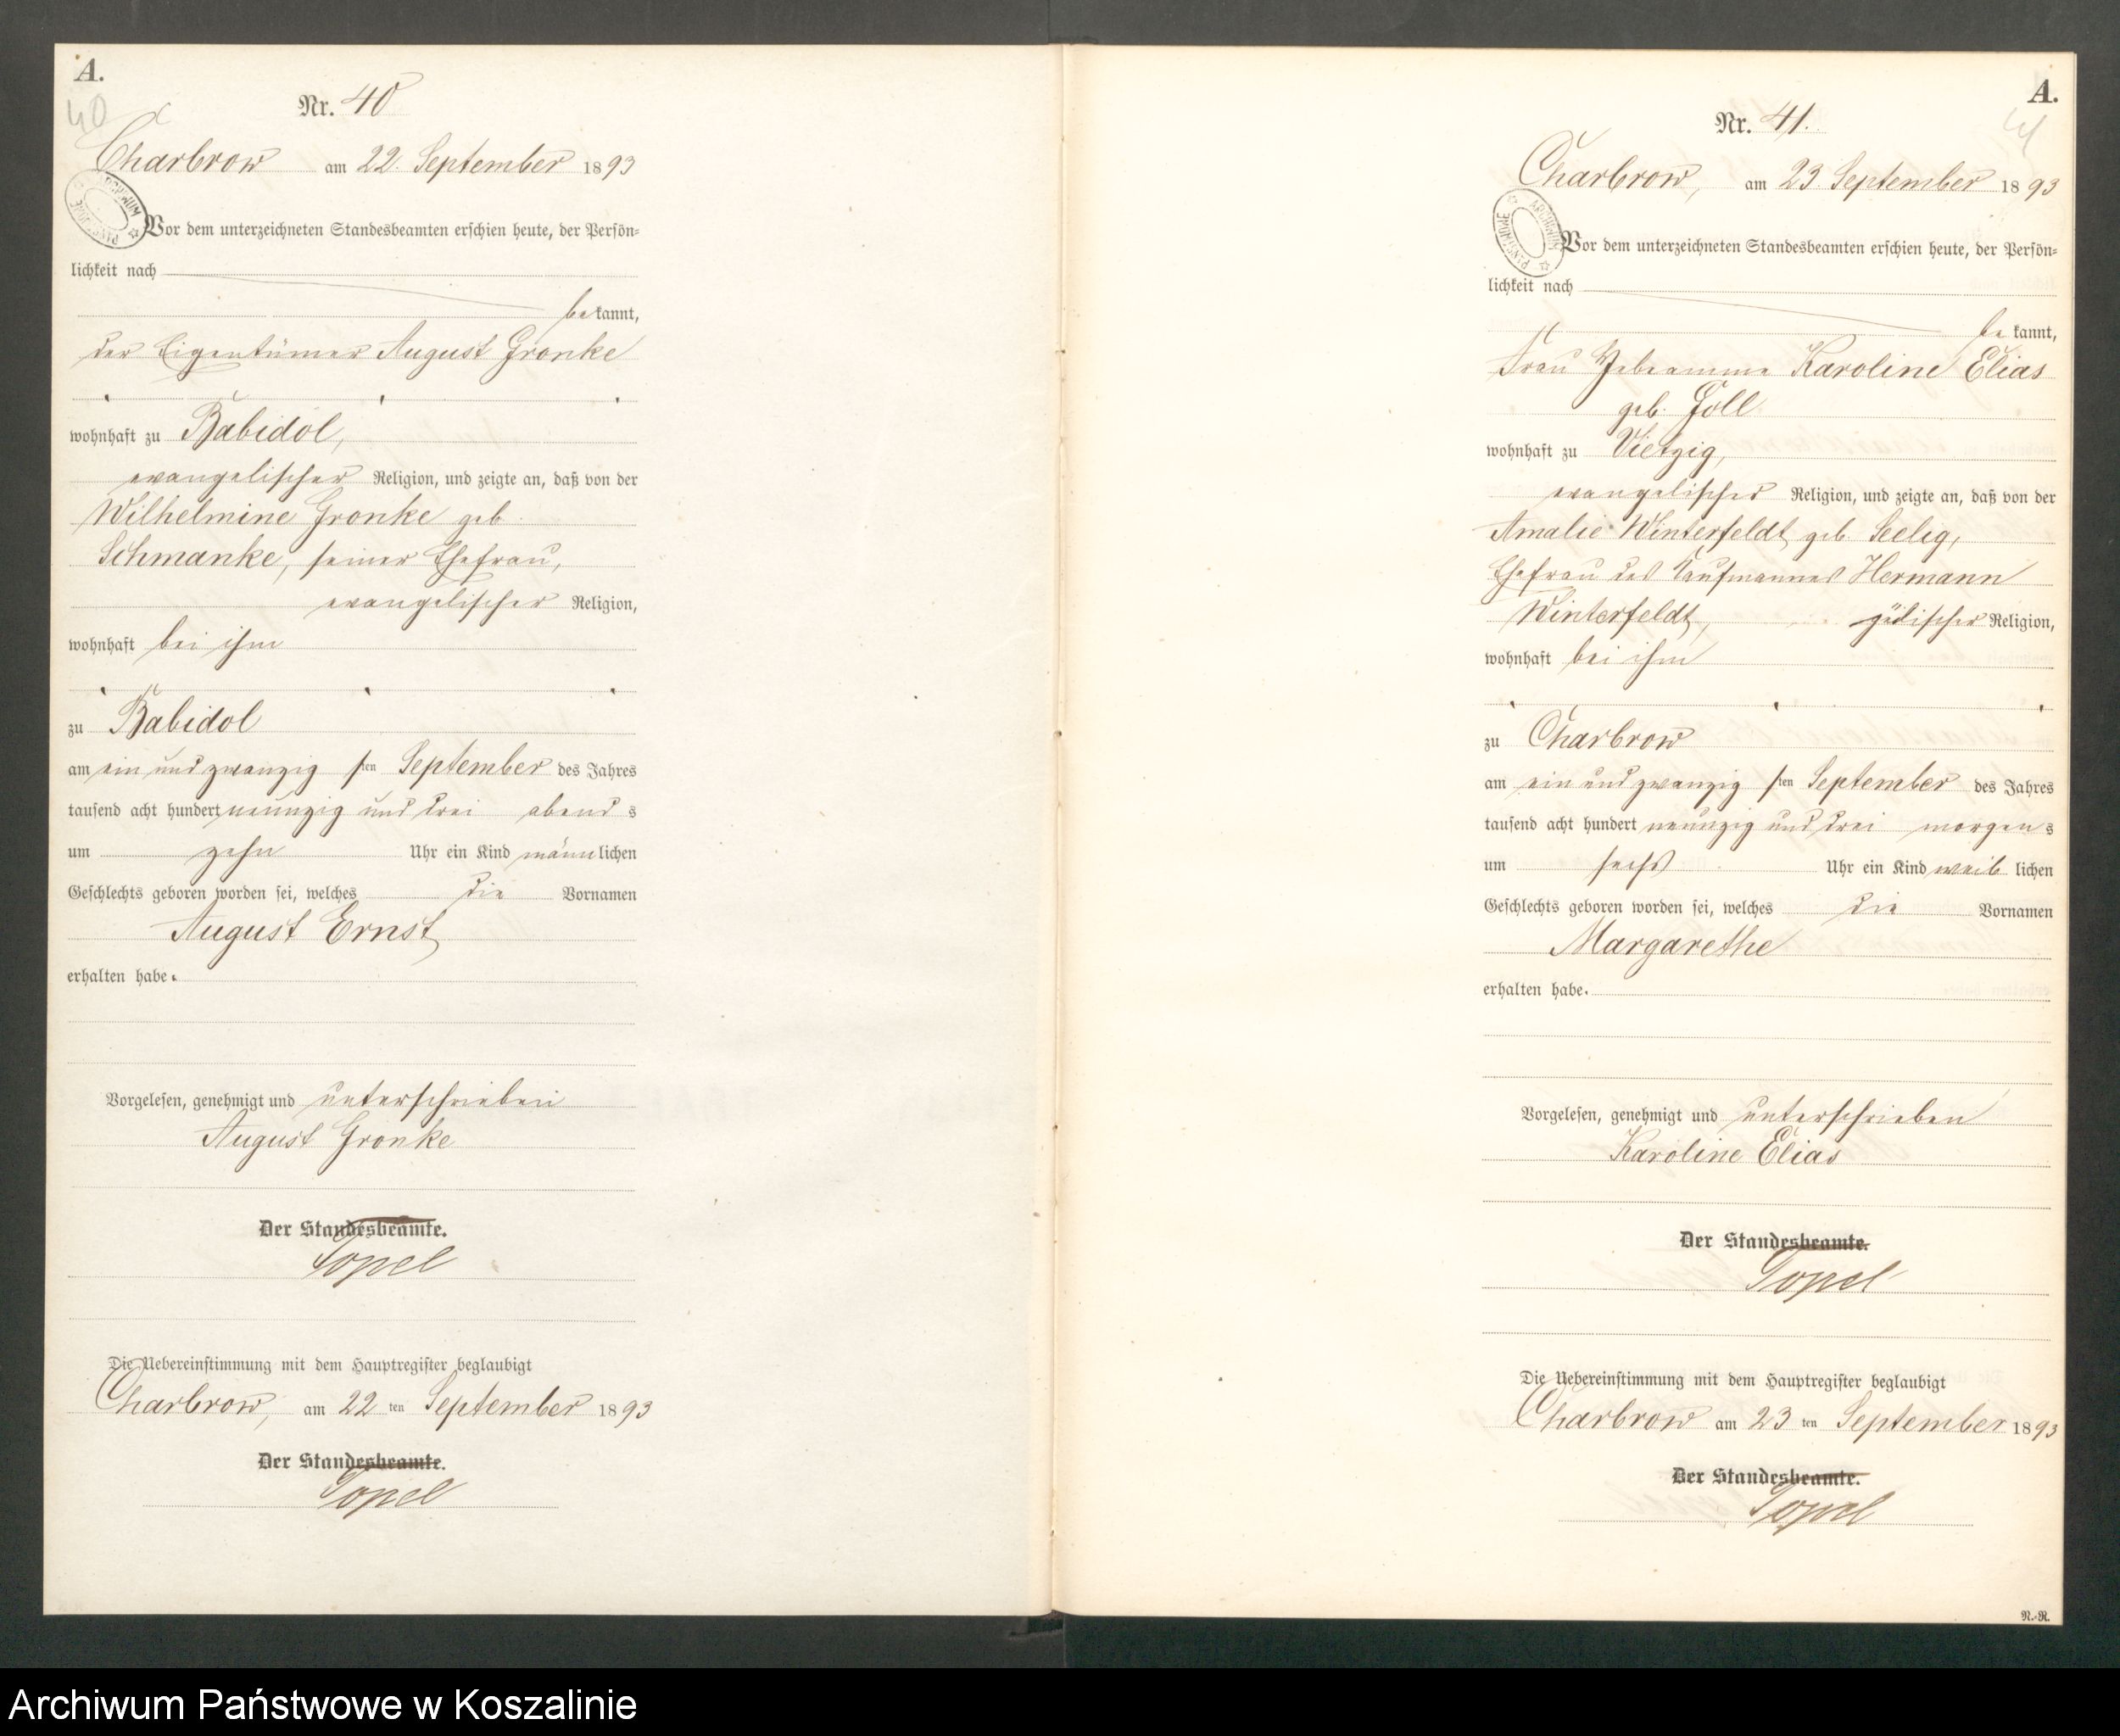 A.
40
Nr. 40
Charbrow am 22. September 1893
Vor dem unterzeichneten Standesbeamten erschien heute, der Persön-
lichkeit nach
bekannt,
der Eigentümer August Gronke
wohnhaft zu Babidol,
evangelischer Religion, und zeigte an, daß von der
Wilhelmine Gronke geb.
Schmanke, seiner Ehefrau,
evangelischer Religion,
wohnhaft bei ihm
zu Babidol
am ein und zwanzigsten September des Jahres
tausend acht hundert neunzig und drei abends
um zehn Uhr ein Kind männlichen
Geschlechts geboren worden sei, welches die Vornamen
August Ernst
erhalten habe.
Vorgelesen, genehmigt und unterschrieben
August Gronke
Der Standesbeamte.
Topel
Die Uebereinstimmung mit dem Hauptregister beglaubigt
Charbrow, am 22ten September 1893
Der Standesbeamte.
Topel
A.
41
Nr. 41.
Charbrow, am 23. September 1893
ARCHIWUM PAŃSTWOWE
Vor dem unterzeichneten Standesbeamten erschien heute, der Persön-
lichkeit nach
bekannt,
Frau Hebeamme Karoline Elias
geb. Joll
wohnhaft zu Vietzig,
evangelischer Religion, und zeigte an, daß von der
Amalie Winterfeldt geb. Seelig,
Ehefrau des Kaufmannes Hermann
Winterfeldt, jüdischer Religion,
wohnhaft bei ihm
zu Charbrow
am ein und zwanzigsten September des Jahres
tausend acht hundert neunzig und drei morgens
um sechs Uhr ein Kind weiblichen
Geschlechts geboren worden sei, welches die Vornamen
Margarethe
erhalten habe.
Vorgelesen, genehmigt und unterschrieben
Karoline Elias
Der Standesbeamte.
Topel
Die Uebereinstimmung mit dem Hauptregister beglaubigt
Charbrow am 23ten September 1893
Der Standesbeamte.
Topel
R.-R.
Archiwum Państwowe w Koszalinie